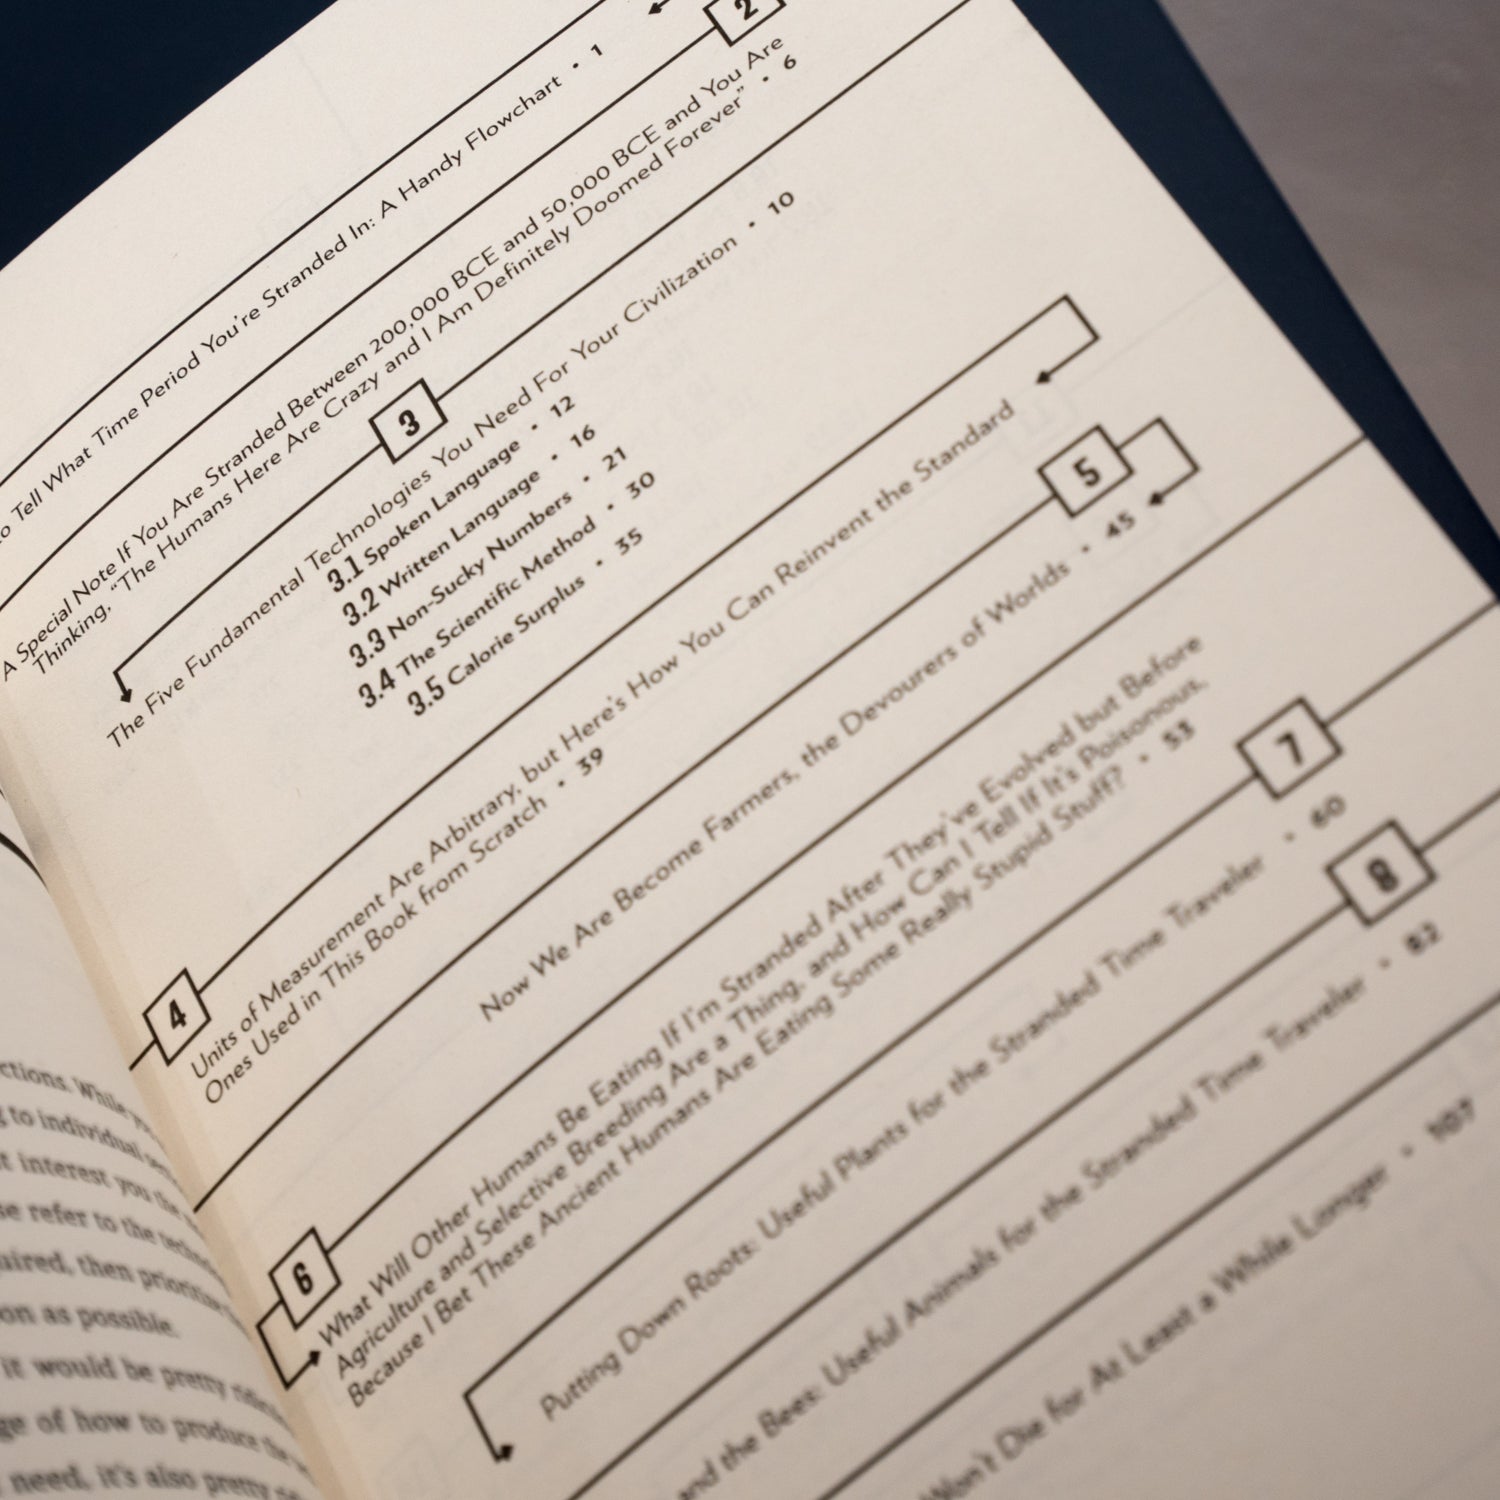 to Tell What Time Period You're Stranded In: A Handy Flowchart • 1
2
A Special Note If You Are Stranded Between 200,000 BCE and 50,000 BCE and You Are
Thinking, "The Humans Here Are Crazy and I Am Definitely Doomed Forever" • 6
3
The Five Fundamental Technologies You Need For Your Civilization • 10
3.1 Spoken Language • 12
3.2 Written Language • 16
3.3 Non-Sucky Numbers • 21
3.4 The Scientific Method • 30
3.5 Calorie Surplus • 35
4
Units of Measurement Are Arbitrary, but Here's How You Can Reinvent the Standard
Ones Used in This Book from Scratch • 39
5
Now We Are Become Farmers, the Devourers of Worlds • 45
6
What Will Other Humans Be Eating If I'm Stranded After They've Evolved but Before
Agriculture and Selective Breeding Are a Thing, and How Can I Tell If It's Poisonous,
Because I Bet These Ancient Humans Are Eating Some Really Stupid Stuff? • 53
7
Putting Down Roots: Useful Plants for the Stranded Time Traveler • 60
8
and the Bees: Useful Animals for the Stranded Time Traveler • 82
Won't Die for At Least a While Longer • 107
ctions. While
to individual
interest you the
refer to the
then prioritize
on as possible.
it would be pretty
ge of how to produce the
need, it's also pretty